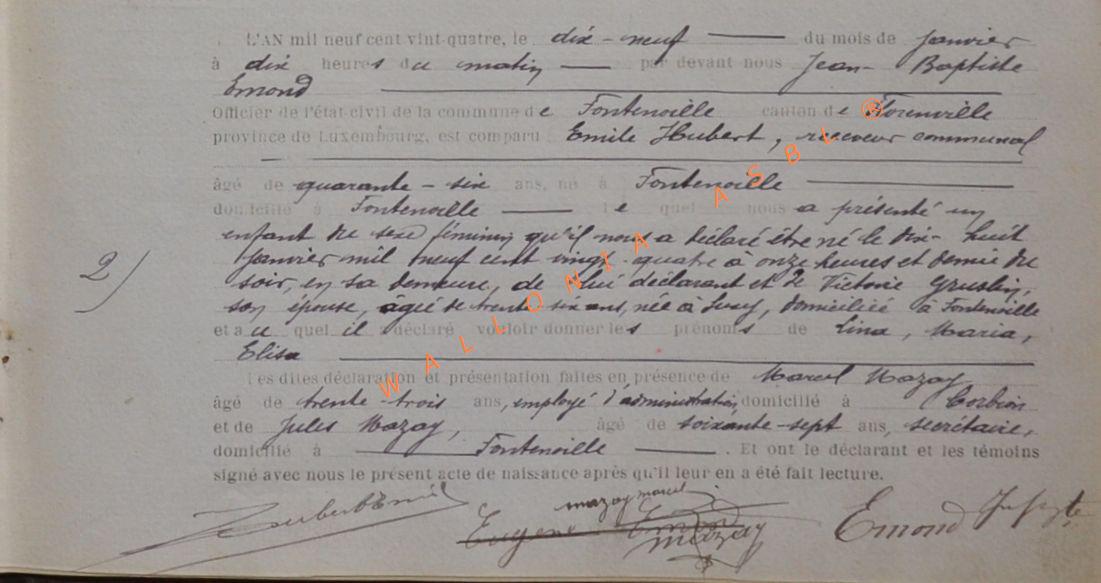 L'AN mil neuf cent vint-quatre, le dix-neuf du mois de Janvier
à dix heures du matin par devant nous Jean-Baptiste
Emond
Officier de l'état-civil de la commune de Fontenoille canton de Florenville
province de Luxembourg, est comparu Emile Hubert, receveur communal
âgé de quarante-six ans, né à Fontenoille
domicilié à Fontenoille le quel nous a présenté un
enfant de sexe féminin qu'il nous a déclaré être né le dix-huit
Janvier mil neuf cent vingt-quatre à onze heures et demie du
soir, en sa demeure, de lui déclarant et de Victorie Gruslin,
son épouse, âgée de trente six ans, née à Suxy, domiciliée à Fontenoille
et au quel il a déclaré vouloir donner les prénoms de Lina, Maria,
Elisa
Les dites déclaration et présentation faites en présence de Marcel Mazay
âgé de trente-trois ans, employé d'administration, domicilié à Corbion
et de Jules Mazay, âgé de soixante-sept ans, secrétaire,
domicilié à Fontenoille. Et ont le déclarant et les témoins
signé avec nous le présent acte de naissance après qu'il leur en a été fait lecture.
2)
Hubert Emile
mazay marcel
Eugène Emond
mazay
Emond
WALLONIA ASBL ®